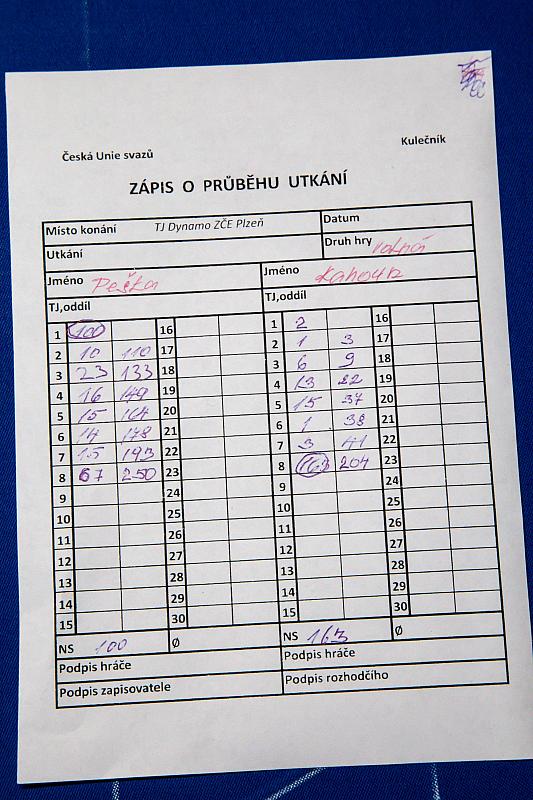 Česká Unie svazů Kulečník
ZÁPIS O PRŮBĚHU UTKÁNÍ
Místo konání TJ Dynamo ZČE Plzeň Datum
Utkání Druh hry volná
Jméno Peška Jméno Kahoun
TJ,oddíl TJ,oddíl
1 100 16 1 2 16
2 10 110 17 2 1 3 17
3 23 133 18 3 6 9 18
4 16 149 19 4 13 22 19
5 15 164 20 5 15 37 20
6 14 178 21 6 1 38 21
7 15 193 22 7 3 41 22
8 67 250 23 8 163 204 23
9 24 9 24
10 25 10 25
11 26 11 26
12 27 12 27
13 28 13 28
14 29 14 29
15 30 15 30
NS 100 Ø NS 163 Ø
Podpis hráče Podpis hráče
Podpis zapisovatele Podpis rozhodčího